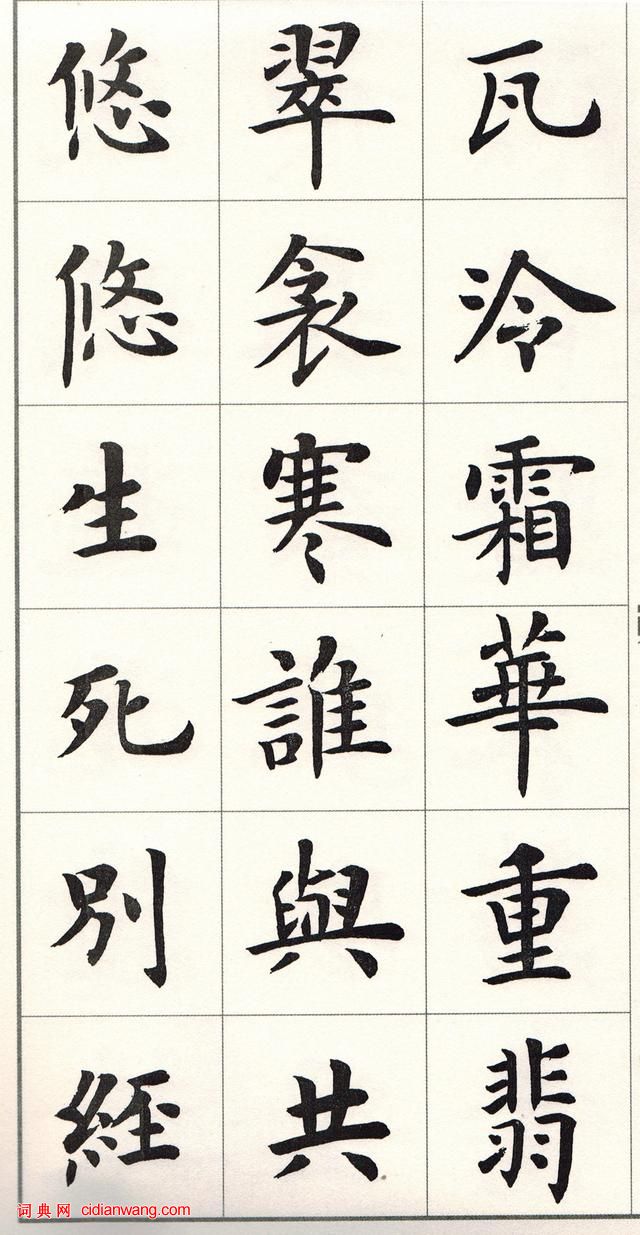 瓦冷霜華重翡
翠衾寒誰與共
悠悠生死別經
词典网 cidianwang.com